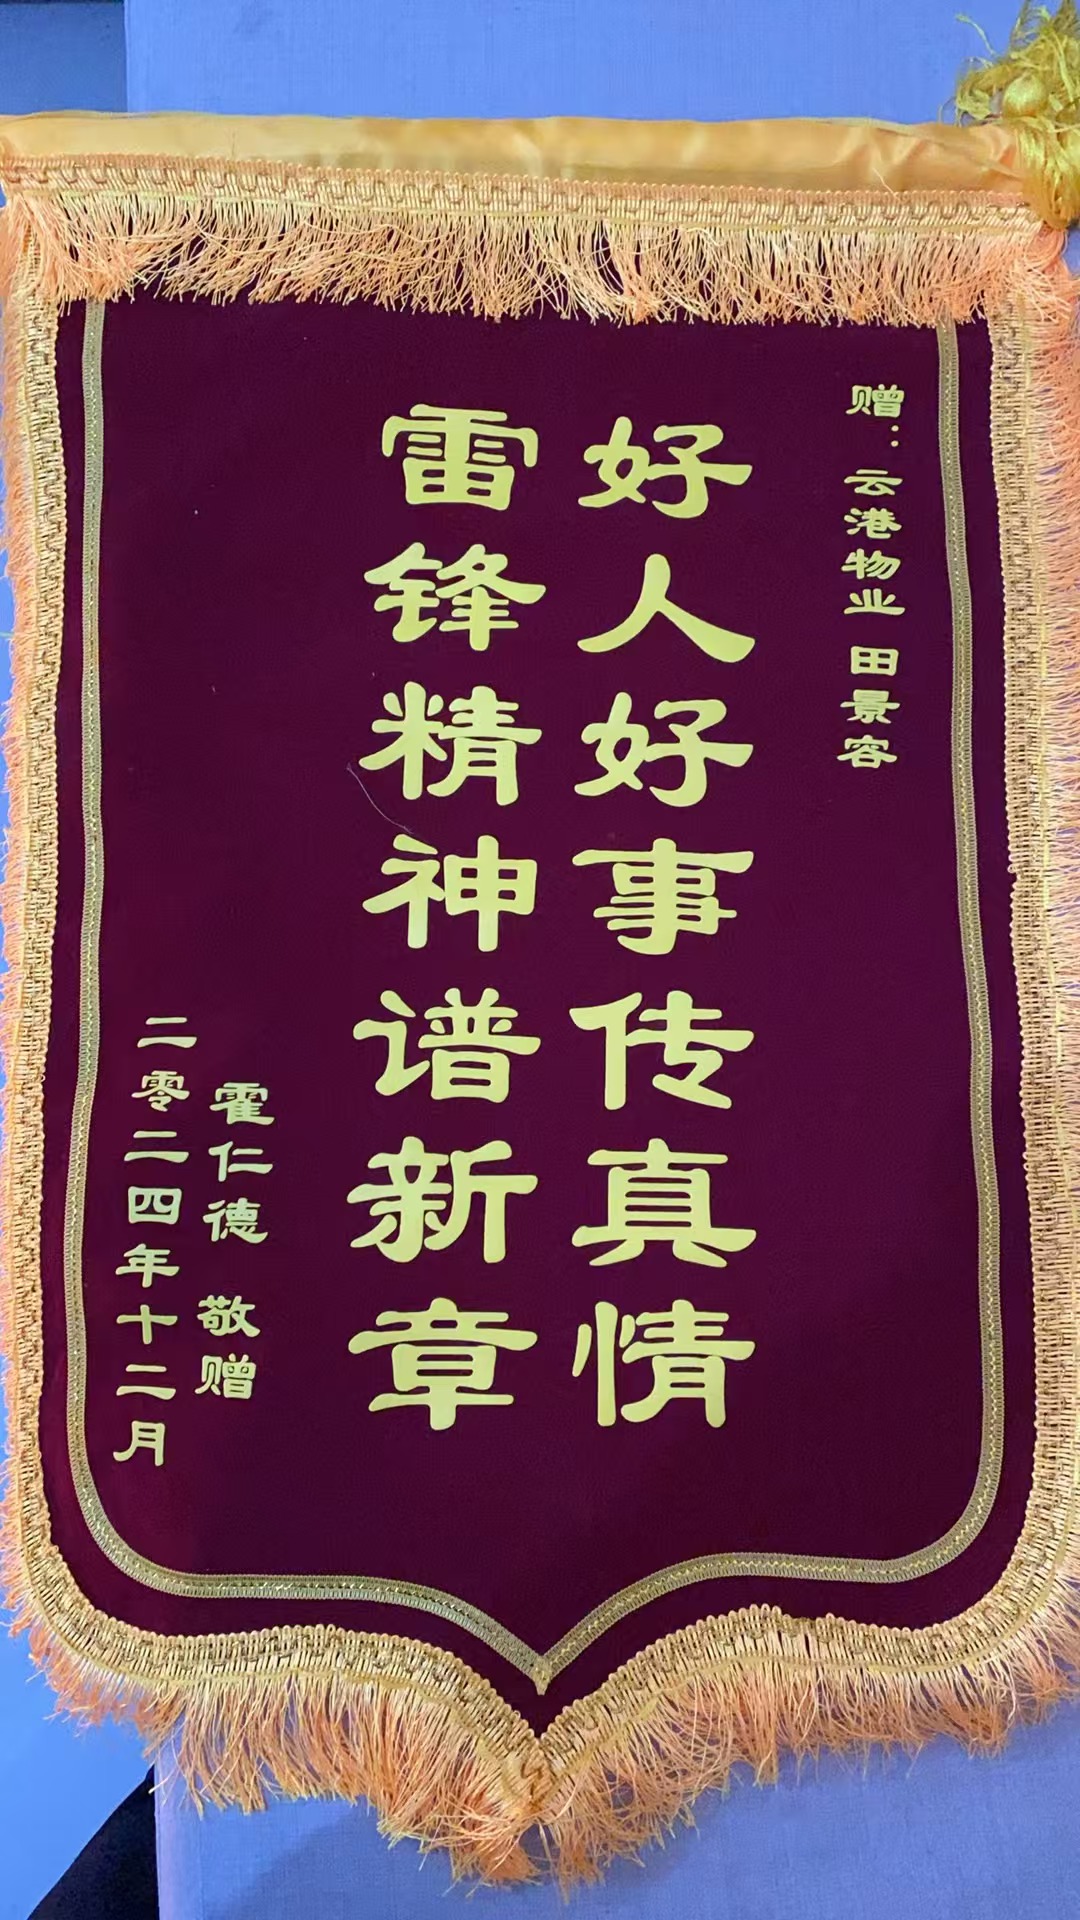 赠：云港物业 田景容
好人好事传真情
雷锋精神谱新章
霍仁德 敬赠
二零二四年十二月